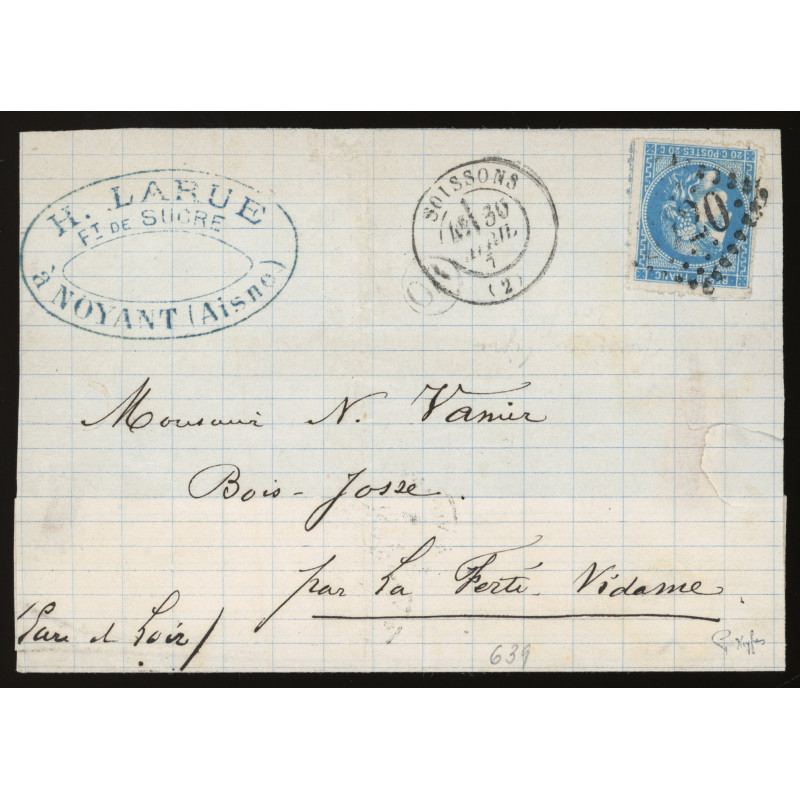 H. LARUE
FT DE SUCRE
à NOYANT (Aisne)
SOISSONS
30
AVRIL
(2)
20 C POSTES 20 C
Monsieur N. Vanier
Bois-Josse.
par La Ferté-Vidame
(Eure et Loir)
639